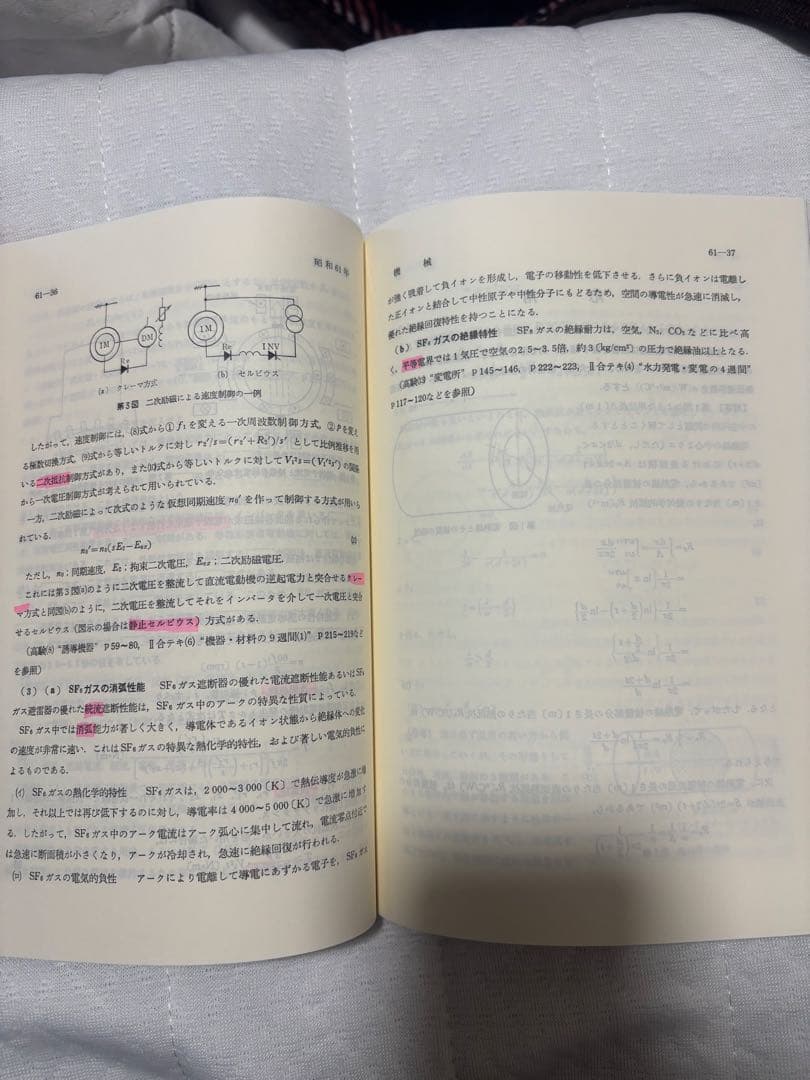 61—36
昭和61年
IM
DM
Re
IM
Re
INV
(a) クレーマ方式
(b) セルビウス
第3図 二次励磁による速度制御の一例
したがって，速度制御には，(8)式から① f₁を変える一次周波数制御方式，② Pを変え
る極数切換方式，(9)式から等しいトルクに対し r₂'/s=(r₂'+R₂')/s' として比例推移を用
いる二次抵抗制御方式があり，また⑽式から等しいトルクに対して の関係
から一次電圧制御方式が考えられて用いられている．
一方，二次励磁によって次式のような仮想同期速度 n₀' を作って制御する方式が用いら
れている．
n₀'=n₀(sE₂−Eₑₓ)
ただし，n₀；同期速度，E₂；拘束二次電圧，Eₑₓ；二次励磁電圧．
これには第3図(a)のように二次電圧を整流して直流電動機の逆起電力と突合せるクレー
マ方式と同図(b)のように，二次電圧を整流してそれをインバータを介して一次電圧と突合
せるセルビウス（図示の場合は静止セルビウス）方式がある．
(高験⑻ “誘導機器” p59〜80，Ⅱ合テキ(6) “機器・材料の9週間(1)” p215〜219など
を参照)
(3) (a) SF₆ガスの消弧性能 SF₆ガス遮断器の優れた電流遮断性能あるいはSF₆
ガス避雷器の優れた続流遮断性能は，SF₆ガス中のアークの特異な性質によっている．
SF₆ガス中では消弧能力が著しく大きく，導電体であるイオン状態から絶縁体への変化
の速度が非常に速い．これはSF₆ガスの特異な熱化学的特性，および著しい電気的負性に
よるものである．
(イ) SF₆ガスの熱化学的特性 SF₆ガスは，2 000〜3 000〔K〕で熱伝導度が急激に増
加し，それ以上では再び低下するのに対し，導電率は4 000〜5 000〔K〕で急激に増加す
る．したがって，SF₆ガス中のアーク電流はアーク弧心に集中して流れ，電流零点付近で
は急速に断面積が小さくなり，アークが冷却され，急速に絶縁回復が行われる．
(ロ) SF₆ガスの電気的負性 アークにより電離して導電にあずかる電子を，SF₆ガス
機 械
61—37
が強く吸着して負イオンを形成し，電子の移動性を低下させる．さらに負イオンは電離し
た正イオンと結合して中性原子や中性分子にもどるため，空間の導電性が急速に消滅し，
優れた絶縁回復特性を持つことになる．
(b) SF₆ガスの絶縁特性 SF₆ガスの絶縁耐力は，空気，N₂，CO₂などに比べ高
く，平等電界では1気圧で空気の2.5〜3.5倍，約3〔kg/cm²〕の圧力で絶縁油以上となる．
(高験⒀ “変電所” p145〜146，p222〜223，Ⅱ合テキ(4) “水力発電・変電の4週間”
p117〜120などを参照)